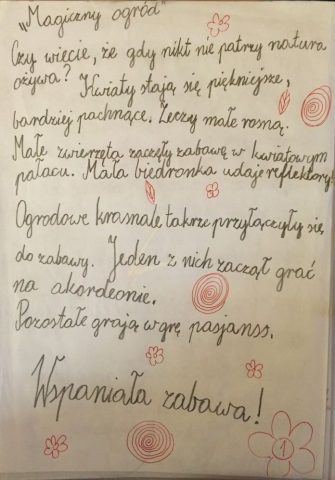 „Magiczny ogród”
Czy więcie, że gdy nikt nie patrzy natura
ożywa? Kwiaty stają się piękniejsze,
bardziej pachnące. Leczy małe rosną.
Małe zwierzęta zaczęły zabawę w kwiatowym
pałacu. Mała biedronka udaje reflektory.
Ogrodowe krasnale takrze przyłączyły się
do zabawy. Jeden z nich zaczął grać
na akordeonie.
Pozostałe grają w grę pasjanss.
Wspaniała zabawa!
1